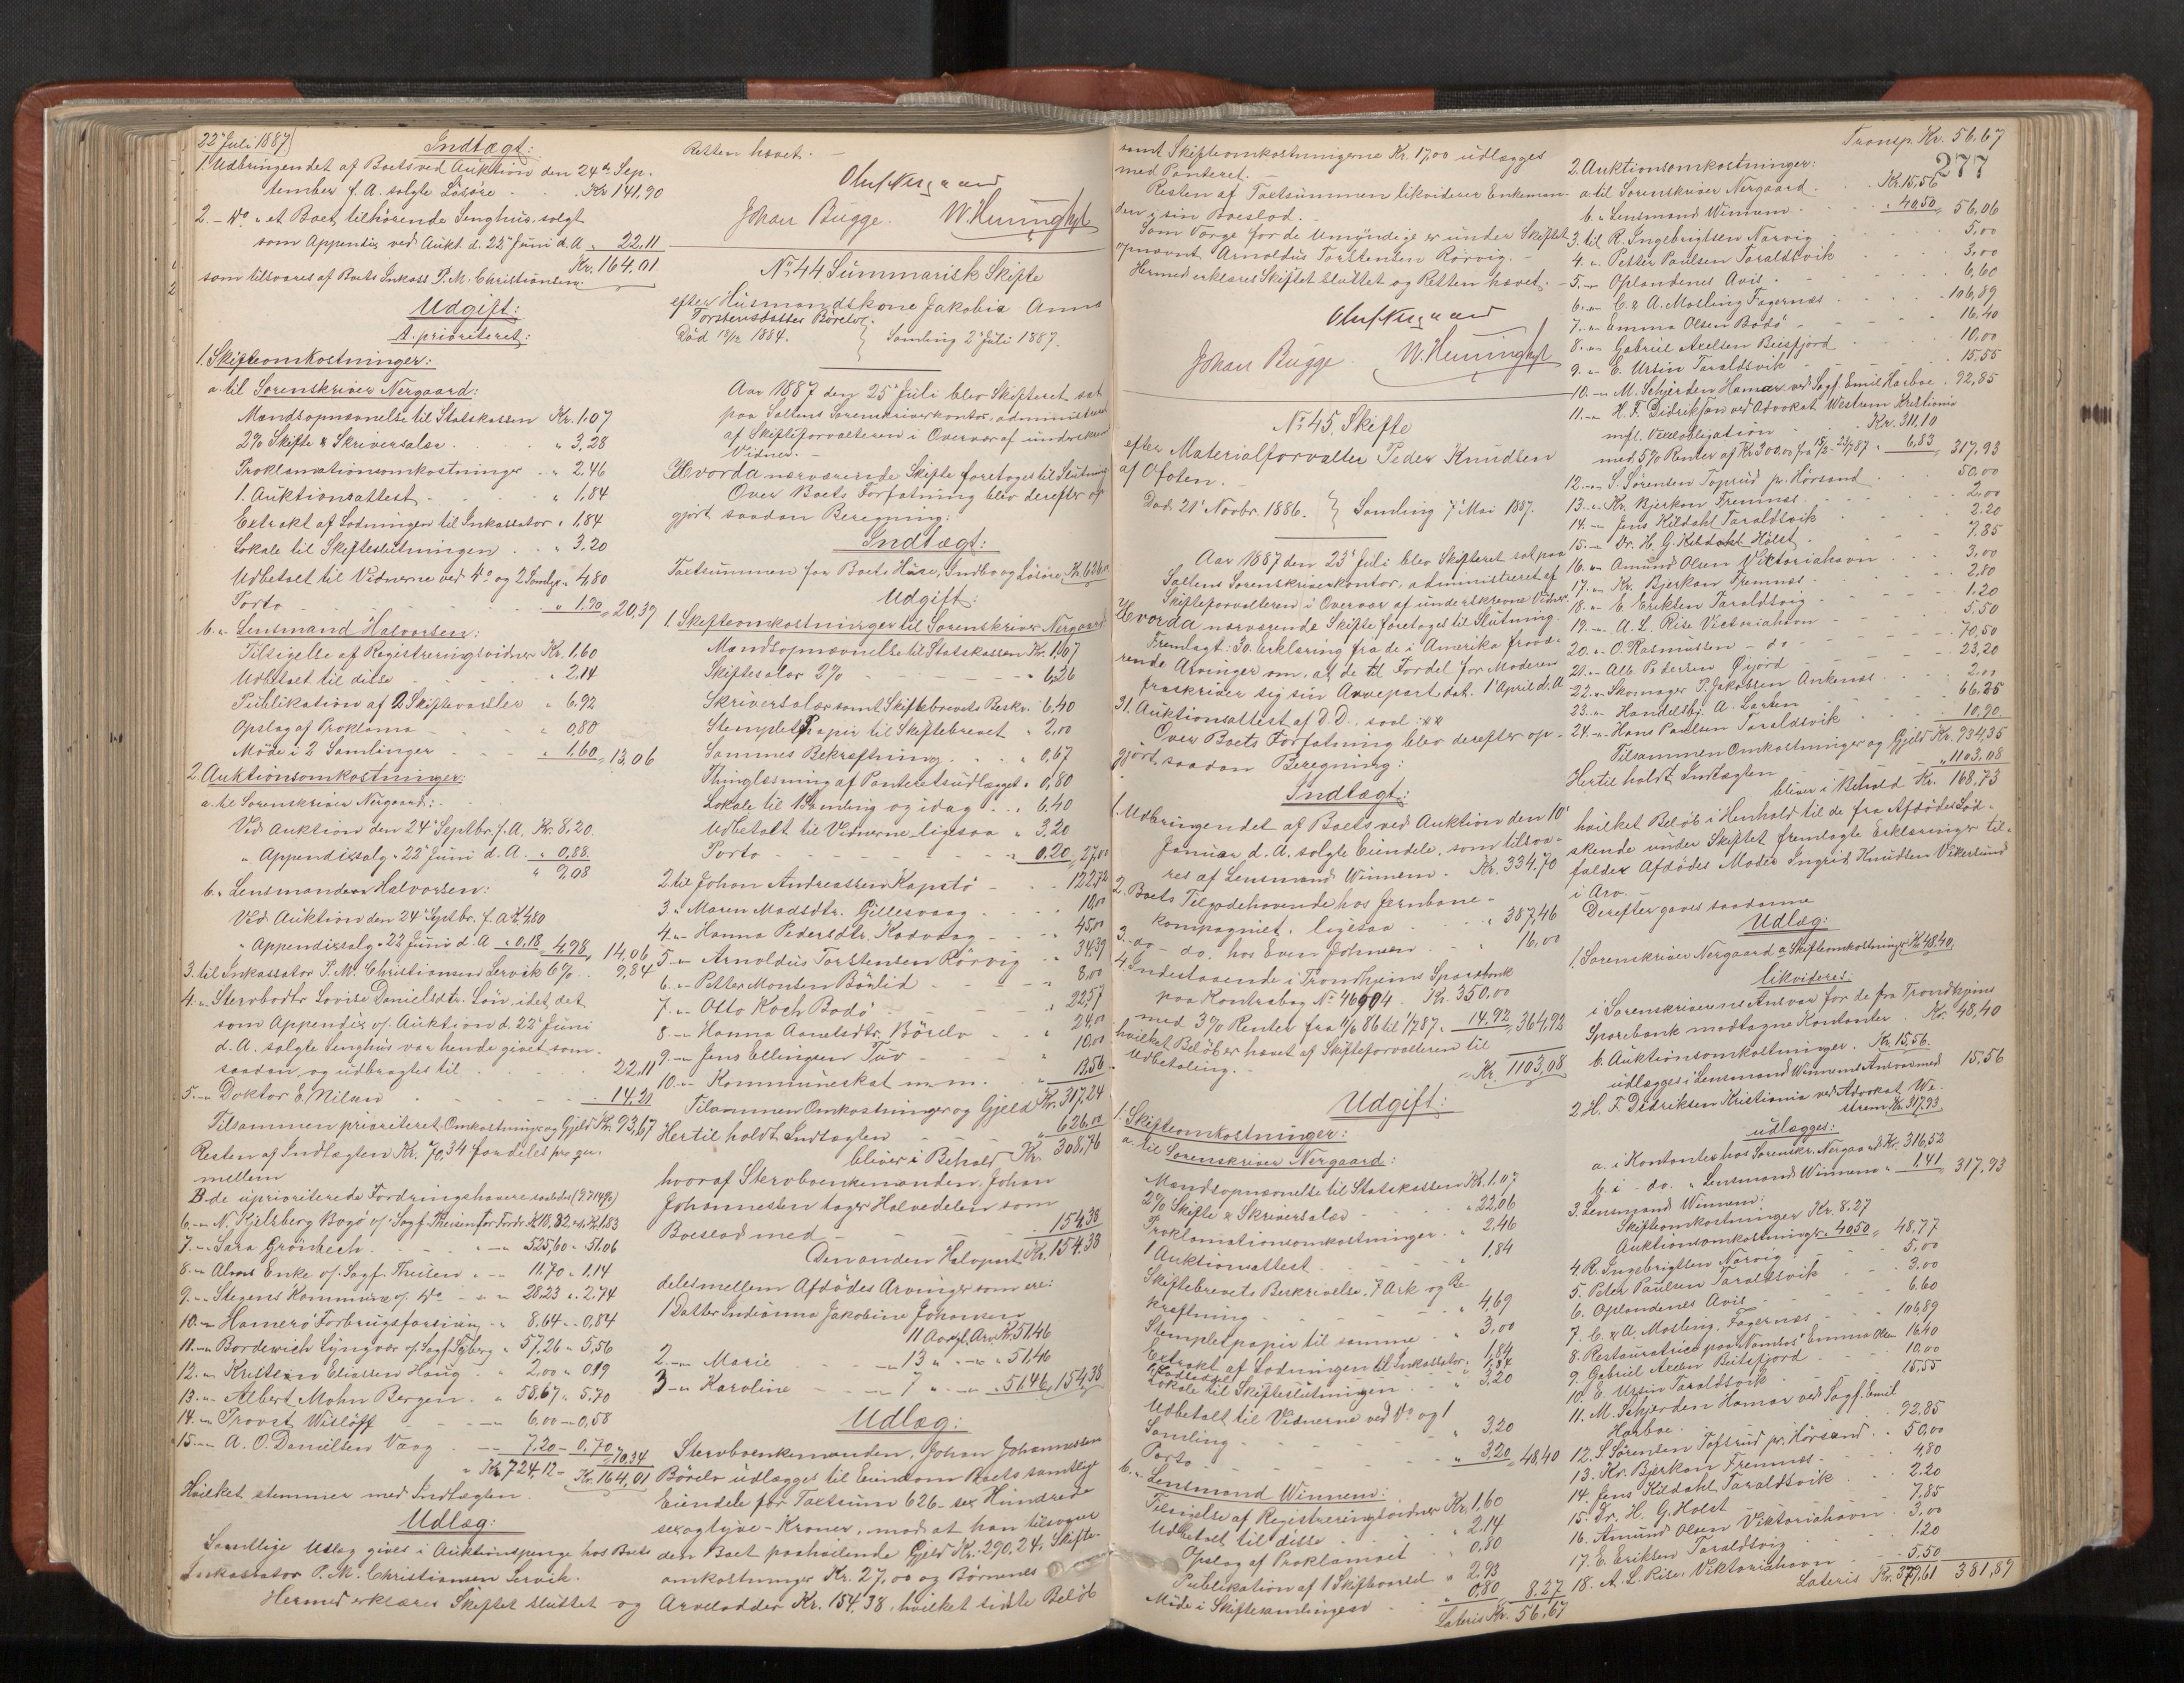 22' Juli 1887
Indtægt:
1. Udbringendet af Boets ved Auktion den 24de Sep-
tember f. A. solgte Løsøre . Kr 141,90
2. - do. " et Boet tilhørende Senghus, solgt
som Appendix ved Aukt. d. 22' Juni d. A. " 22,11
Kr. 164,01
som tilsvares af Boets Inkass. P. M. Christiansen.
Udgift:
A. prioriteret:
1. Skifteomkostninger:
a. til Sorenskriver Nergaard:
Mandsopnævnelse til Statskassen Kr. 1,07
2% Skifte & Skriversalær . " 3,28
Proklamationsomkostninger . " 2,46
1. Auktionsattest . " 1,84
Extrakt af Lodningen til Inkassator " 1,84
Lokale til Skifteslutningen . " 3,20
Udbetalt til Vidnerne ved do. og 2 Samlgr. " 4,80
Porto . " 1,90 = 20,39
b. " Lensmand Halvorsen:
Tilsigelse af Registreringsvidner Kr. 1,60
Udbetalt til disse " 2,14
Publikation af 2 Skiftevarsler " 6,92
Opslag af Proklama " 0,80
Møde i 2 Samlinger " 1,60 = 13,06
2. Auktionsomkostninger:
a. til Sorenskriver Nergaard:
Ved Auktion den 24' Septbr. f. A. Kr. 8,20
" Appendixsalg " 22' Juni d. A. " 0,88
" 9,08
b. " Lensmanden Halvorsen:
Ved Auktion den 24' Septbr. f. A. Kr 4,80
" Appendixsalg " 22' Juni d. A " 0,18 4,98 14,06
3. til Inkassator P. M. Christiansen Lervik 6% . 9,84
4. " Stervbodtr Lovise Danielsdtr. Løn, idet det
som Appendix v/ Auktion d. 22' Juni
d. A. solgte Senghus var hende givet som
saadan, og udbragtes til . 22,11
5. " Doktor E. Nilsen . 14,21
Tilsammen prioriteret, Omkostninger og Gjeld Kr. 93,67
Resten af Indtægten Kr. 70,34 fordeles pro qu.
mellem
B. de uprioriterede Fordringshavere saaledes (9,714%)
6. " N. Kjelsberg Bogø v/ Sagf. Theisen for Fordr. Kr 18,82 udl. Kr. 1,83
7. " Sara Grønbech . " 525,60 " 51,06
8. " Alms Enke v/ Sagf. Theisen " 11,70 " 1,14
9. " Stegens Kommune v/ do " 28,23 " 2,74
10. " Hamerø Forbrugsforening " 8,64 " 0,84
11. " Bordewich Lyngvær v/ Sagf. Fyberg " 57,26 " 5,56
12. " Kristian Eliassen Haug " 2,00 " 0,19
13. " Albert Mohn Bergen . " 58,67 " 5,70
14. " Provst Wisløff " 6,00 " 0,58
15. " A. O. Danielsen Vaag . " 7,20 " 0,70 70,34
Kr. 724,12 - Kr. 164,01
Hvilket stemmer med Indtægten.
Udlæg:
Samtlige Udlæg gives i Auktionspenge hos Boets
Inkassator P. M. Christiansen Lervik.
Hermed erklæres Skiftet sluttet og
Retten hævet. -
Oluf Nergaard
Johan Bugge.
No. 44 Summarisk Skifte
efter Husmandskone Jakobia Anna
Torstensdatter Børelv.
Død 13/12 1884. } Samling 2' Juli 1887.
Aar 1887 den 25' Juli blev Skifteret sat
paa Saltens Sorenskriverkontor, administreret
af Skifteforvalteren i Overvær af underskrevne
Vidner. -
Hvorda nærværende Skifte foretoges til Slutning
Over Boets Forfatning blev derefter op-
gjort saadan Beregning:
Indtægt:
Taxtsummen for Boets Huse, Indbo og Løsøre, Kr. 626,00
Udgift:
1. Skifteomkostninger til Sorenskriver Nergaard
Mandsopnævnelse til Statskassen Kr. 1,07
Skiftesalær 2% " 6,26
Skriversalær samt Skiftebrevets Beskr. " 6,40
Stemplet Papir til Skiftebrevet " 2,00
Sammes Bekræftning . " 0,67
Thinglæsning af Panteretsudlægget " 0,80
Lokale til 1 Samling og idag . " 6,40
Udbetalt til Vidnerne ligesaa " 3,20
Porto " 0,20 = 27,00
2. til Johan Andreassen Kapstø . 122,72
3. " Maren Madsdtr. Gillesvaag . 10,00
4. " Hanna Pedersdtr. Kodvaag . 45,00
5. " Arnoldus Torstensen Rørvig . 34,39
6. " Petter Monsen Børlid . 8,00
7. " Otto Koch Bodø . 22,57
8. " Hanna Anetsdtr. Børelv . 24,00
9. " Jens Ellingsen Tuv . 10,00
10. " Kommuneskat m. m. 13,56
Tilsammen Omkostninger og Gjeld Kr. 317,24
Hertil holdt Indtægten " 626,00
bliver i Behold Kr. 308,76
hvoraf Stervboenkemanden, Johan
Johannessen tager Halvedelen som
Boeslod med . 154,38
Den anden Halvpart Kr. 154,38
deles mellem Afdødes Arvinger som ere:
1 Datter Indianna Jakobine Johansen
11 Aar gl. Arv Kr. 51,46
2. " Marie " 13 " " " 51,46
3 " Karoline " 7 " " 51,46, 154,38
Udlæg:
Stervboenkemanden, Johan Johannessen
Børelv udlægges til Eiendom Boets samtlige
Eiendele for Taxtsum 626 - sex Hundrede
sex og tyve - Kroner, mod at han tilsvarer
den Boet paahvilende Gjeld Kr. 290,24, Skifte-
omkostninger Kr. 27,00 og Børnenes
Arvelodder Kr. 154,38, hvilket sidste Beløb
samt Skifteomkostningerne Kr. 17,00 udlægges
med Panteret. -
Resten af Taxtsummen likviderer Enkeman-
den i sin Boeslod. -
Som Værge for de Umyndige er under Skiftet
opnævnt Arnoldus Torstensen Rørvig. -
Hermed erklæres Skiftet sluttet og Retten hævet. -
Oluf Nergaard
Johan Bugge
No. 45. Skifte
efter Materialforvalter Peder Knudsen
af Ofoten.
Død 21' Novbr. 1886. } Samling 7' Mai 1887.
Aar 1887 den 25' Juli blev Skifteret sat paa
Saltens Sorenskriverkontor, administreret af
Skifteforvalteren i Overvær af underskrevne Vidner.
Hvorda nærværende Skifte foretoges til Slutning.
Fremlagt: 30. Erklæring fra de i Amerika fravæ-
rende Arvinger om, at de til Fordel for Moderen
fraskriver sig sin Arvepart, dat. 1' April d. A
31. Auktionsattest af D.D., saal:
Over Boets Forfatning blev derefter op-
gjort saadan Beregning:
Indtægt:
1. Udbringendet af Boets ved Auktion den 10'
Januar d. A. solgte Eiendele, som tilsva-
res af Lensmand Winnem . Kr. 334,70
2. Boets Tilgodehavende hos Jernbane-
kompagniet, ligesaa . " 387,46
3. do - do. hos Even Johnsen " 16,00
4. Indestaaende i Trondhjems Sparebank
paa Kontrabog No. 46904. Kr. 350,00
med 3% Renter fra 11/6 86 til 1/7 87 " 14,92 = 364,92
hvilket Beløb er hævet af Skifteforvalteren til
Udbetaling. - Kr. 1103,08
Udgift:
1. Skifteomkostninger:
a. til Sorenskriver Nergaard:
Mandsopnævnelse til Statskassen Kr. 1,07
2% Skifte & Skriversalær " 22,06
Proklamationsomkostninger . " 2,46
1 Auktionsattest . " 1,84
Skiftebrevets Beskrivelse, 7 Ark og Be-
kræftning " 4,69
Stempletpapir til samme . " 3,00
Extrakt af Lodningen til Inkassator. 1,84
1,84
Lokale til Skifteslutningen . " 3,20
Udbetalt til Vidnerne ved do. og 1
Samling " 3,20
Porto " 3,20 = 48,40
b. " Lensmand Winnem:
Tilsigelse af Registreringsvidner Kr. 1,60
Udbetalt til disse " 2,14
Opslag af Proklamaet " 0,80
Publikation af 1 Skiftevarsel " 2,93
Møde i Skiftesamlingen " 0,80 8,27
Lateris Kr. 56,67
Transp. Kr. 56,67
277
2. Auktionsomkostninger:
a. til Sorenskriver Nergaard . Kr. 15,56
b. " Lensmand Winnem . " 40,50 = 56,06
3. til R. Ingebrigtsen Narvig 5,00
4. " Petter Paulsen Taraldsvik 3,00
5. " Oplandenes Avis . 6,60
6. " C. & A. Mosling Fagernæs . 106,89
7. " Emma Olsen Bodø 16,40
8. " Gabriel Axelsen Beisfjord . 10,00
9. " E. Ursin Taraldsvik 15,55
10. " M. Schjerden Hamar ved Sagf. Emil Harboe . 92,85
11. " H. F. Didriksen ved Advokat Westrum Kristiania
mfl. Vexelobligation . Kr. 311,10
med 5% Renter af Kr 300,00 fra 15/2 - 25/7 87 " 6,83 317,93
12. " S. Sørensen Toprud pr. Hørsand . 50,00
13. " Kr. Bjerkan Fremnæs . 2,00
14. " Jens Kildahl Taraldsvik 2,20
15. " Dr. H. G. Kildahl Holst . 7,85
16. " Amund Olsen Viktoriahavn 3,00
17. " Kr. Bjerkan Fremnæs . 2,80
18. " E. Eriksen Taraldsvig . 1,20
19. " A. L. Rise Victoriahavn 5,50
20. " O. Rasmussen - do - 70,50
21. " Alb. Pedersen Øyjord 23,20
22. " Skomager P. Jakobsen Ankenæs 2,00
23. " Handelsbj. A. Larsen 66,25
24. " Hans Paulsen Taraldsvik 10,90
Tilsammen Omkostninger og Gjeld Kr. 934,35
Hertil holdt Indtægten " 1103,08
bliver i Behold Kr. 168,73
hvilket Beløb i Henhold til de fra Afdødes Sød-
skende under Skiftet fremlagte Erklæringer til-
falder Afdødes Moder Ingrid Knudsen Vikersund
i Arv. -
Derefter gaves saadanne
Udlæg:
1. Sorenskriver Nergaard a. Skifteomkostninger Kr 48,40,
likvideres:
i Sorenskriverens Ansvar for de fra Trondhjems
Sparebank modtagne Kontanter . Kr. 48,40
b. Auktionsomkostninger . Kr. 15,56.
udlægges i Lensmand Winnems Ansvar med 15,56
2. H. F. Didriksen Kristiania ved Advokat We-
strum Kr. 317,93
udlægges:
a. i Kontanter hos Sorenskr. Nergaard Kr. 316,52
b. i - do. " Lensmand Winnem " 1,41 = 317,93
3. Lensmand Winnem:
Skifteomkostninger Kr. 8,27
Auktionsomkostninger " 40,50 = 48,77
4. R. Ingebrigtsen Narvig . 5,00
5. Peter Paulsen Taraldsvik 3,00
6. Oplandenes Avis 6,60
7. C. & A. Mosling, Fagernæs 106,89
8. Restauratrice paa "Namsos" Emma Olsen 16,40
9. Gabriel Axelsen Beisfjord 10,00
10. E. Ursin Taraldsvik 15,55
11. M. Schjerden Hamar ved Sagf. Emil
Harboe . 92,85
12. S. Sørensen Tofsrud pr. Hørsand . 50,00
13. Kr. Bjerkan Fremnæs . 4,80
14. Jens Kildahl Taraldsvik . 2,20
15. Dr. H. G. Holst 7,85
16. Amund Olsen Viktoriahavn . 3,00
17. E. Eriksen Taraldsvig 1,20
18. A. L. Rise, Viktoriahavn 5,50
Lateris 381,87